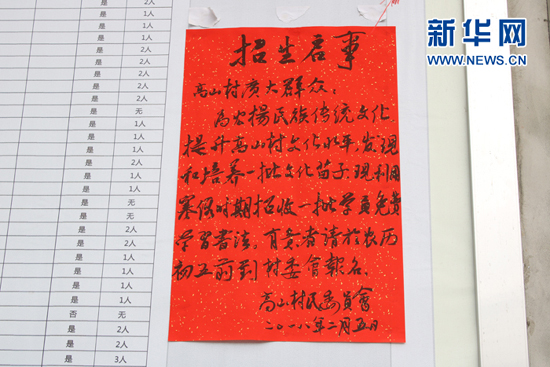 是 2人
是 1人
是 1人
是 1人
是 2人
是 2人
是 2人
是 无
是 1人
是 1人
是 1人
是 1人
是 1人
是 无
是 无
是 2人
是 1人
是 1人
是 1人
否 无
是 2人
是 2人
是 3人
招生启事
高山村廣大群众：
為宏揚民族传统文化
提升高山村文化水平，发现
和培养一批文化苗子，现利用
寒假时期招收一批学員免费
学習書法。有意者請於农历
初五前到村委會報名。
高山村民委員會
二〇一八年二月五日
新华网
WWW.NEWS.CN